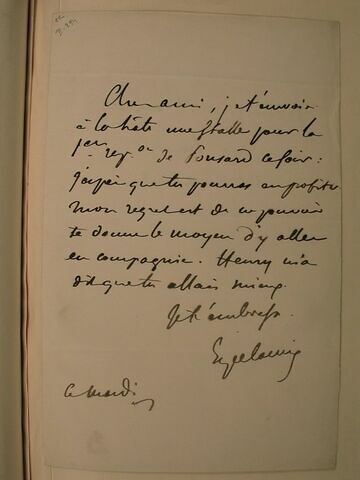 Cher ami, je t'envoie
à la hâte une stalle pour la
1ere repr.on de Ponsard ce soir :
J'espère que tu pourras en profiter
mon regret est de ne pouvoir
te donner le moyen d'y aller
en compagnie. Henry m'a
dit que tu allais mieux.
Je t'embrasse.
Eug Delacroix
ce mardi